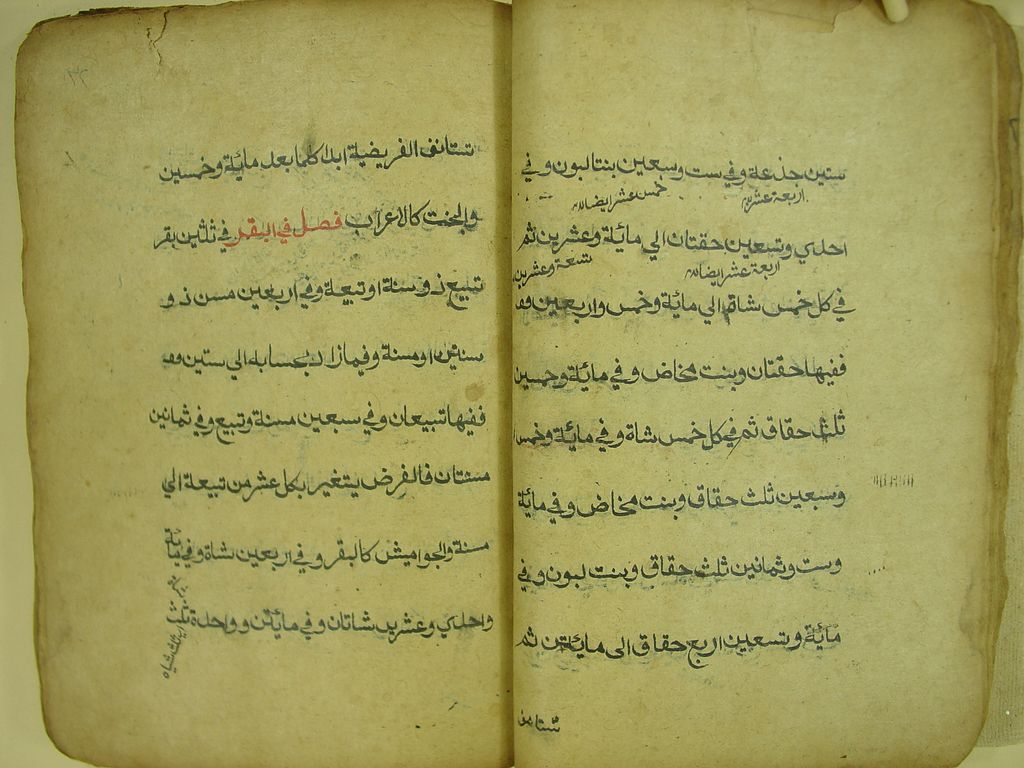 ستين جذعة وفي ست وسبعين بنتا لبون وفي
اربعة عشر
خمس عشر ايضا
احدي وتسعين حقتان الي مائة وعشرين ثم
اربعة عشر ايضا
تسعة وعشرين
في كل خمس شاة الي مائة وخمس واربعين
ففيها حقتان وبنت مخاض وفي مائة وخمسين
ثلث حقاق ثم في كل خمس شاة وفي مائة وخمس
وسبعين ثلث حقاق وبنت مخاض وفي مائة
وست وثمانين ثلث حقاق وبنت لبون وفي
مائة وتسعين اربع حقاق الى مايتين ثم
تستانف
تستانف الفريضة ابدا كلما بعد مائة وخمسين
والبخت كالاعراب فصل في البقر في ثلثين بقر
تبيع ذو سنة او تبيعة وفي اربعين مسن ذو
سنتين او مسنة وفيما زاد بحسابه الي ستين
ففيها تبيعان وفي سبعين مسنة وتبيع وفي ثمانين
مسنتان فالفرض يتغير بكل عشر من تبيعة الي
مسنة والجواميش كالبقر وفي اربعين شاة وفي مائة
واحدي وعشرين شاتان وفي مايتن وواحدة ثلث